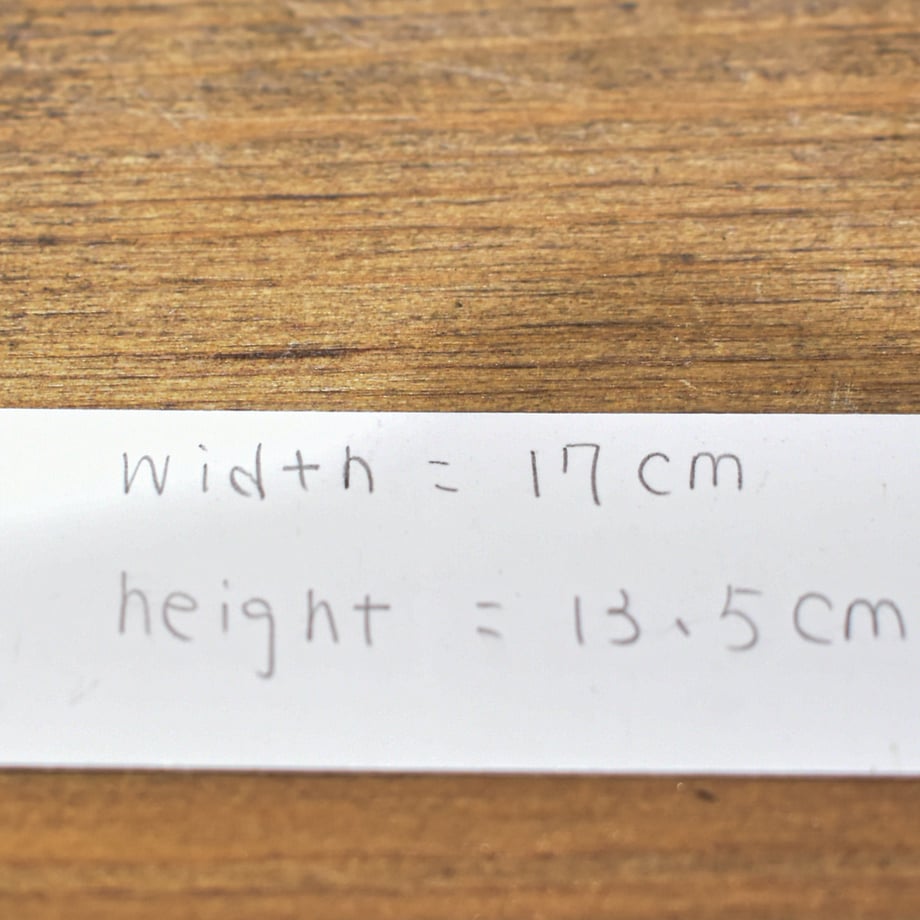 width = 17 cm
height = 13.5 cm